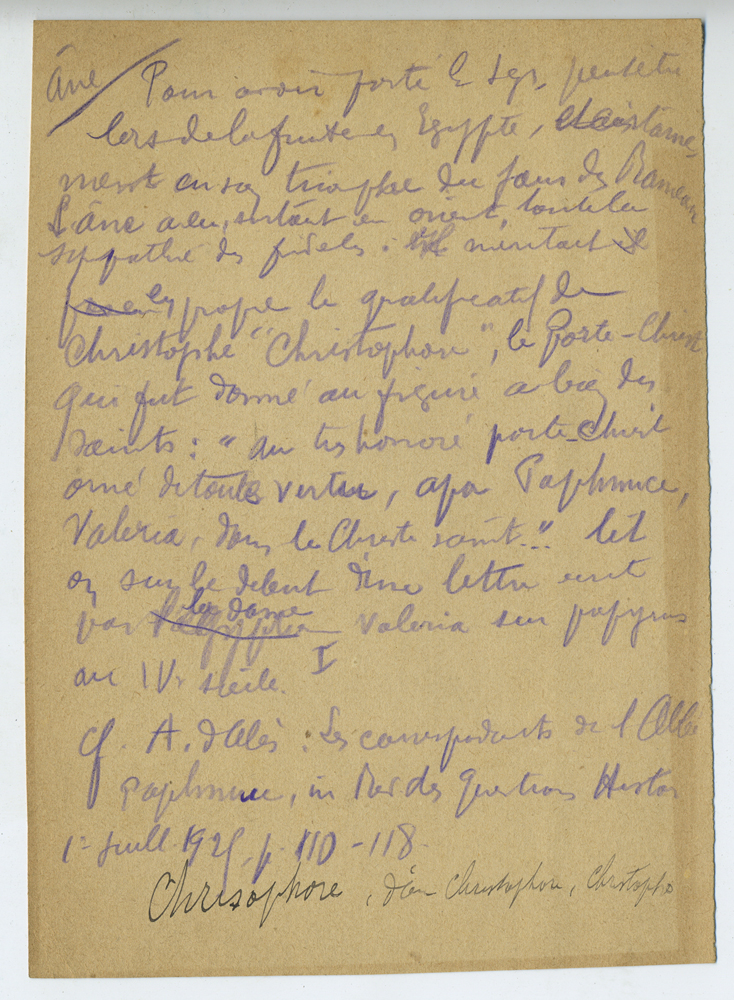 âne / Pour avoir porté le Sgr, peut être
lors de la fuite en Egypte,
en son triomphe du jour des Rameaux
L'âne a eu, surtout en orient, toute la
sympathie des fidèles : il méritait
en propre le qualificatif de
Christophe "Christophore", le Porte-Christ
qui fut donné au figuré à bien des
saints : "au très honoré porte-Christ
orné de toutes vertus, apa Paphnuce,
Valeria, dans le Christe saint..." lit
on sur le début d'une lettre écrit
par la dame Valeria sur papyrus
au IVe siècle. I
cf. A. d'Alès : Les correspondants de l'Abbé
Paphnuce, in Rev des Questions Histor
1er Juill. 192 , p. 110-118.
Chrisophore, d'où Christophore, Christophe